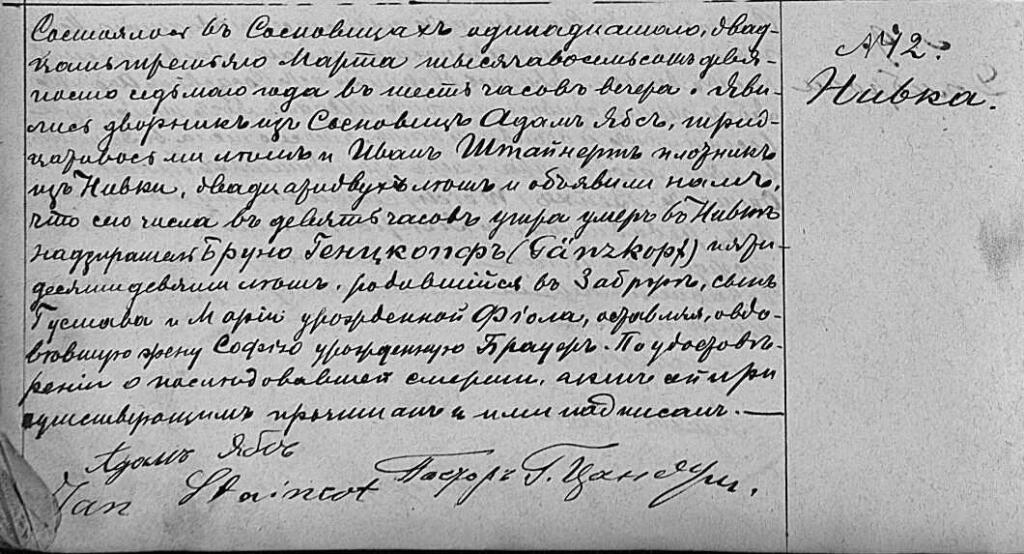 Состоялось въ Сосновицахъ одинадцатаго, двад-
цать третьяго Марта тысяча восемьсотъ девя-
носто седьмаго года въ шесть часовъ вечера. Яви-
лись дворникъ изъ Сосновицъ Адамъ Ябсъ, трид-
цативосьми лѣтъ и Иванъ Штайнертъ плотникъ
изъ Нивки, двадцатидвухъ лѣтъ и объявили намъ,
что сего числа въ девять часовъ утра умеръ въ Нивкѣ
надзиратель Бруно Генцкопфъ (Gänzkopf) пяти-
десяти девяти лѣтъ, родившійся въ Забржѣ, сынъ
Густава и Маріи урожденной Фіола, оставляя, овдо-
вѣвшую жену Софію урожденную Брауеръ. По удостовѣ-
реніи о послѣдовавшей смерти, актъ сей при
сутствующимъ прочитанъ и ими подписанъ. —
Адамъ Ябсъ
Jan Пасторъ Г. Цандеръ.
№ 72.
Нивка.